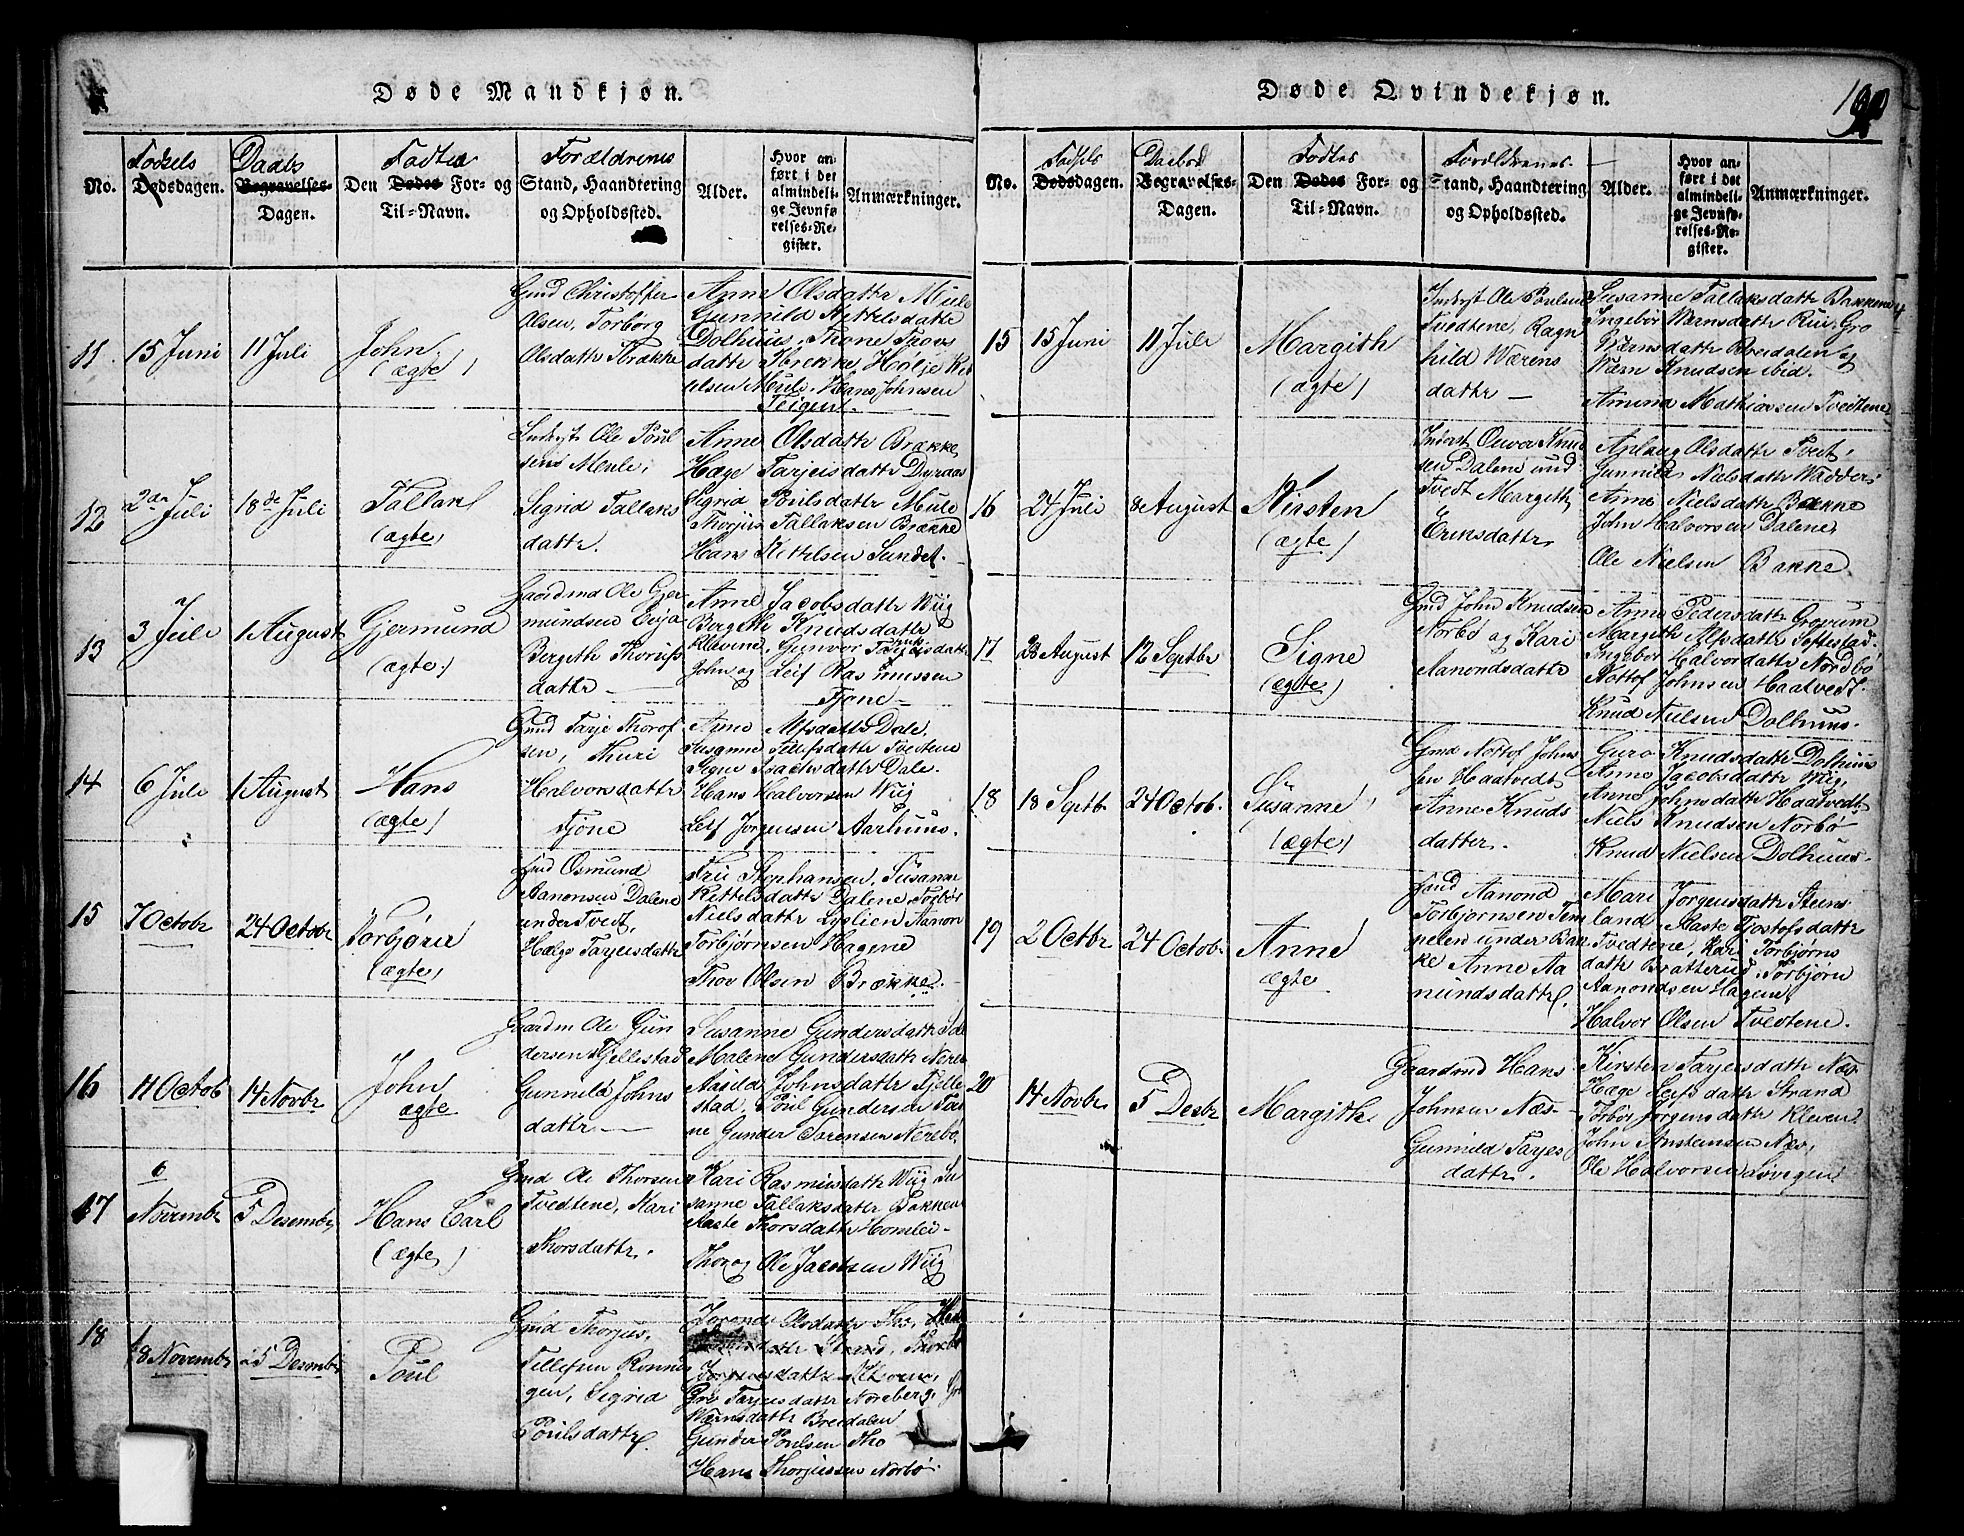 Døde Mandkjøn.
No.
Fødsels
Dødsdagen.
Daabs
Begravelses-
Dagen.
Fødtes
Den Dødes For- og
Til-Navn.
Forældrenes
Stand, Haandtering
og Opholdssted.
Alder.
Hvor an-
ført i det
almindeli-
ge Jevnfø-
relses-Re-
gister.
Anmærkninger.
11.
15 Juni
11 Juli
John
(ægte)
Gmd Christoffer
Olsen, Torborg
Olsdatter Brække
Anne Olsdattr Mule
Gunnild Kittelsdattr
Dolhuus, Thone Thors
dattr Brekke, Hølje Kit
elsen Meule, Hans Johnsen
Teigen.
12
2de Juli
18de Juli
Tallak
(ægte)
Inderst Ole Poul
sens Meule,
Sigrid Tallaks
dattr.
Anne Olsdattr Brække
Hæge Tarjeisdattr Dyraas
Sigrid Poulsdattr Mule
Thorjus Tallaksen Brække
Hans Kittelsen Sundet.
13
3 Juli
1 August
Gjermund
(ægte)
Gaardmd Ole Gjer
mundsen Evja
Bergithe Thorjus
dattr
Anne Jacobsdattr Wiig
Bergithe Knudsdattr
Klævene, Gunvor Tarjeisdattr
John og Leif Rasmussen
Fjone
14
6 Juli
1 August
Hans
(ægte)
Gmd Tarje Thorof
sen, Thuri
Halvorsdattr
Fjone
Anne Alfsdattr Dale.
Susanne Tellefsdattr Tvetene
Signe Isachsdattr Dale.
Hans Halvorsen Wiig
Leif Jørgensen Aarhuus.
15
7 Octobr
24 Octobr
Torbjørn
(ægte)
Gmd Osmund
Aanonsen Dalene
under Tvedt,
Hælge Tarjeisdattr
Fru Stephansen, Susanne
Kittelsdattr Dalene, Torbor
Nielsdattr Lyslien, Aanon
Torbjørnsen Hagene
Thov Olsen Brække.
16
11 Octob
14 Novbr
John
ægte
Gaardm Ole Gun
dersen Tjellestad
Gunnild Johns
dattr
Susanne Gundersdattr
Malene Gundersdattr Nerebø
Aasild Johnsdattr Fjelle
stad, Poul Gundersen
ne Gunder Sørensen Nerebø.
17
6
Novembr
5 Desembr
Hans Carl
(ægte)
Gmd Ole Thorsen
Tvedtene, Kari
Thorsdattr.
Kari Rasmusdattr Wiig Su
sanne Tallaksdattr Bakken
Aaste Thorsdattr Homlei
Thor og Ole Jacobsen Wiig
18
18 Novembr
5 Desembr
Poul
Gmd Thorjus
Tellefsen Rønnin
gen, Sigrid
Poulsdattr.
Jorond Olsdattr Tho,
dattr Strand, Thorbor
Jorgensdattr Kleven,
Gro Tarjeisdattr Noreberg, Gro
Wærnsdattr Breidalen
Gunder Poulsen Tho
Hans Thorjussen Norbø
Døde Qvindekjøn.
190
No.
Fødsels
Dødsdagen.
Daabs
Begravelses-
Dagen.
Fødtes
Den Dødes For- og
Til-Navn.
Forældrenes
Stand, Haandtering
og Opholdssted.
Alder.
Hvor an-
ført i det
almindeli-
ge Jevnfø-
relses-Re-
gister.
Anmærkninger.
15
15 Juni
11 Juli
Margith
(ægte)
Inderst Ole Poulsen
Tvedtene, Ragn
hild Wærens
dattr
Susanne Tallaksdattr Bakkene
Ingebor Wærnsdattr Rui, Gro
Wærnsdattr Breidalen og
Wærn Knudsen ibid.
Amund Mathiassen Tvedtene
16
24 Juli
8 August
Kirsten
(ægte)
Inderst Oever Knud
sen Dalene und
Tvedt Margith
Eriksdattr
Aslaug Olsdattr Tvedt,
Gunnild Nielsdattr Wadder
Anne Nielsdattr Bakke
John Halvorsen Dalene,
Ole Nielsen Bakke.
17
28 August
12 Septbr
Signe
(ægte)
Gmd John Knudsen
Norbø og Kari
Aanondsdattr
Anne Pedersdattr Grovum
Margith Alfsdattr Toftestad
Ingebor Halvordattr Nordbø
Nottof Johnsen Haatvedt.
Knud Nielsen Dolhuus.
18
18 Septbr
24 Octob.
Susanne
(ægte)
Gmd Nottof Johns
sen Haatvedt
Anne Knuds
datter.
Guro Knudsdattr Dolhuus
Anne Jacobsdattr Wiig,
Anne Johnsdattr Haatvedt
Niels Knudsen Norbø
Knud Nielsen Dolhuus.
19
2 Octbr
24 Octob.
Anne
ægte
Gmd Aanond
Torbjornsen Tem
pelen under Bak
ke Anne Aa
nundsdattr.
Mari Jorgensdattr Steins
land Aaste Tjostofsdattr
Tvedtene, Kari Torbjørns
dattr Bratterud, Torbjørn
Aanondsen Hagene
Halvor Olsen Tvedtene.
20
14 Novbr
5 Desbr
Margith
Gaardmd Hans
Johnsen Næs
Gunnild Tarjes
dattr.
Kirsten Tarjesdattr Næs
Hæge Leifsdattr Strand
Torbor Jorgensdattr Kleven
John Anstensen Næs,
Ole Halvorsen Løvigen